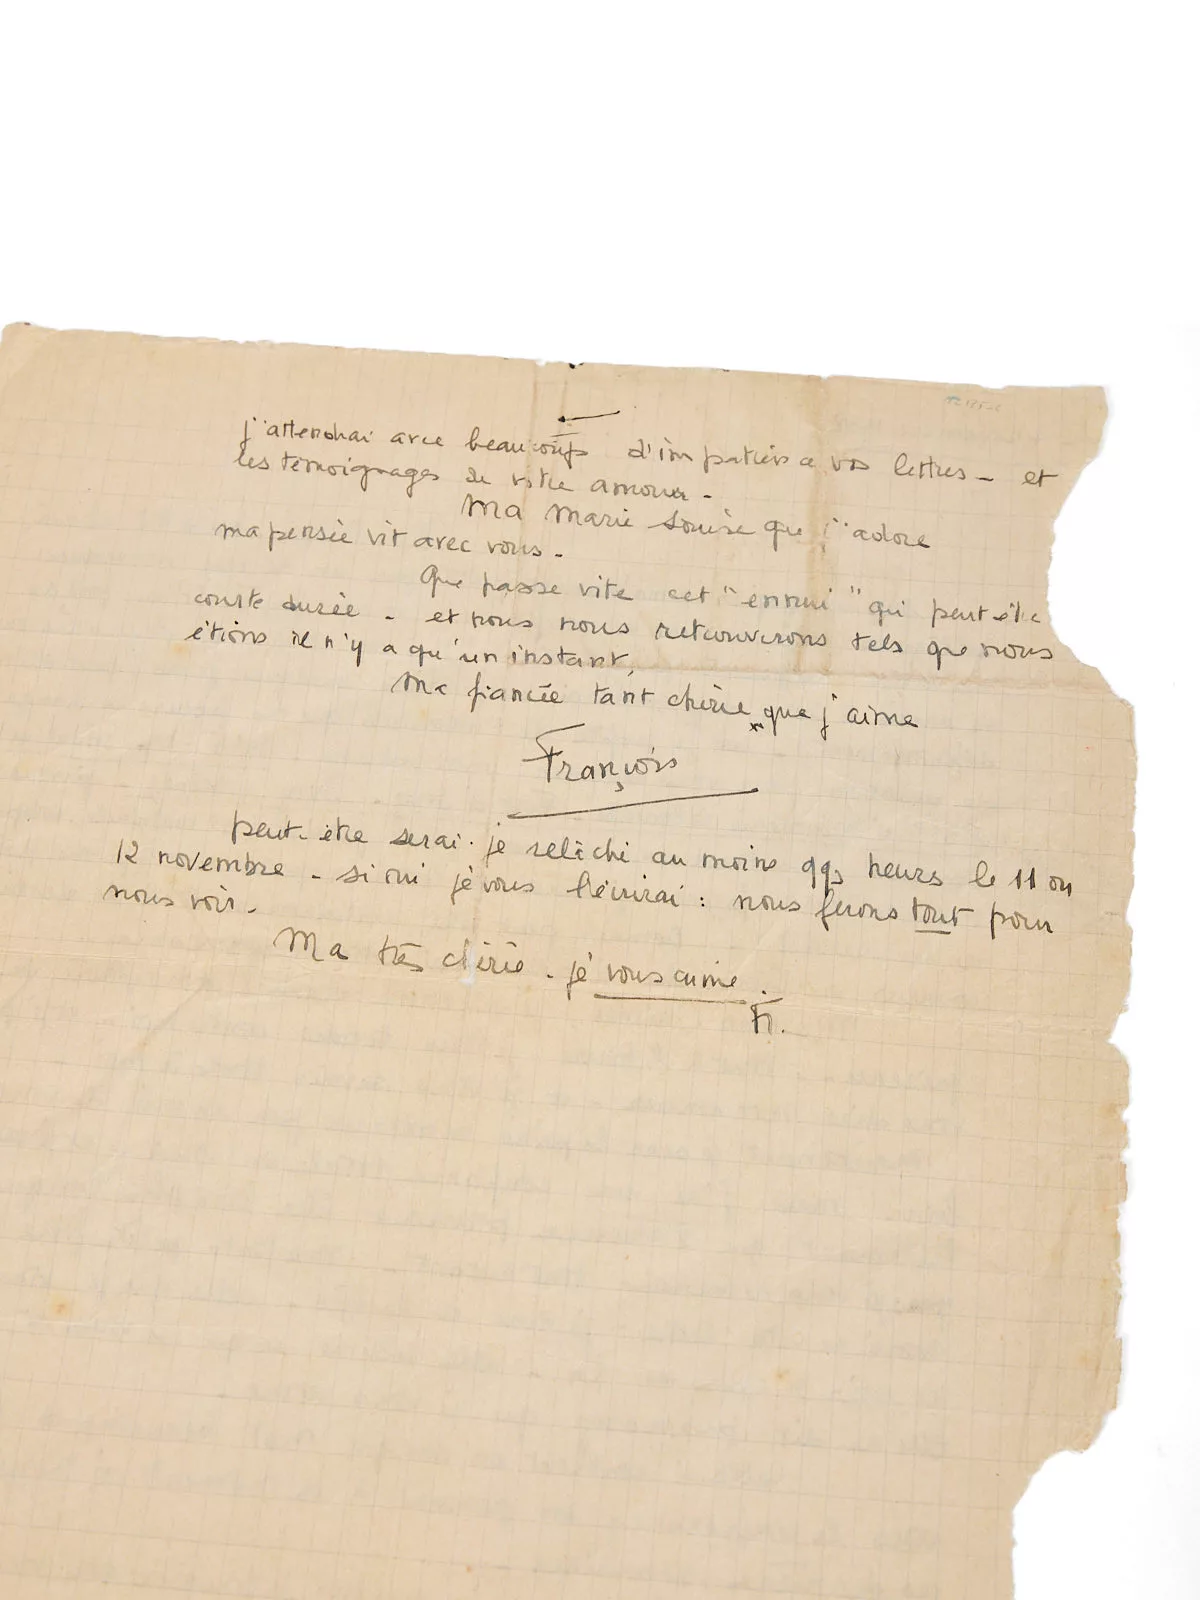 j'attendrai avec beaucoup d'impatience vos lettres - et
les témoignages de votre amour -
Ma Marie Louise que j'adore
ma pensée vit avec vous -
Que passe vite cet "ennui" qui peut être
courte durée - et nous nous retrouverons tels que nous
étions il n'y a qu'un instant,
Ma fiancée tant chérie que j'aime
François
peut-être serai-je relâché au moins qqs heures le 11 ou
12 novembre - si oui je vous l'écrirai : nous ferons tout pour
nous voir -
Ma très chérie - je vous aime .
Fr.